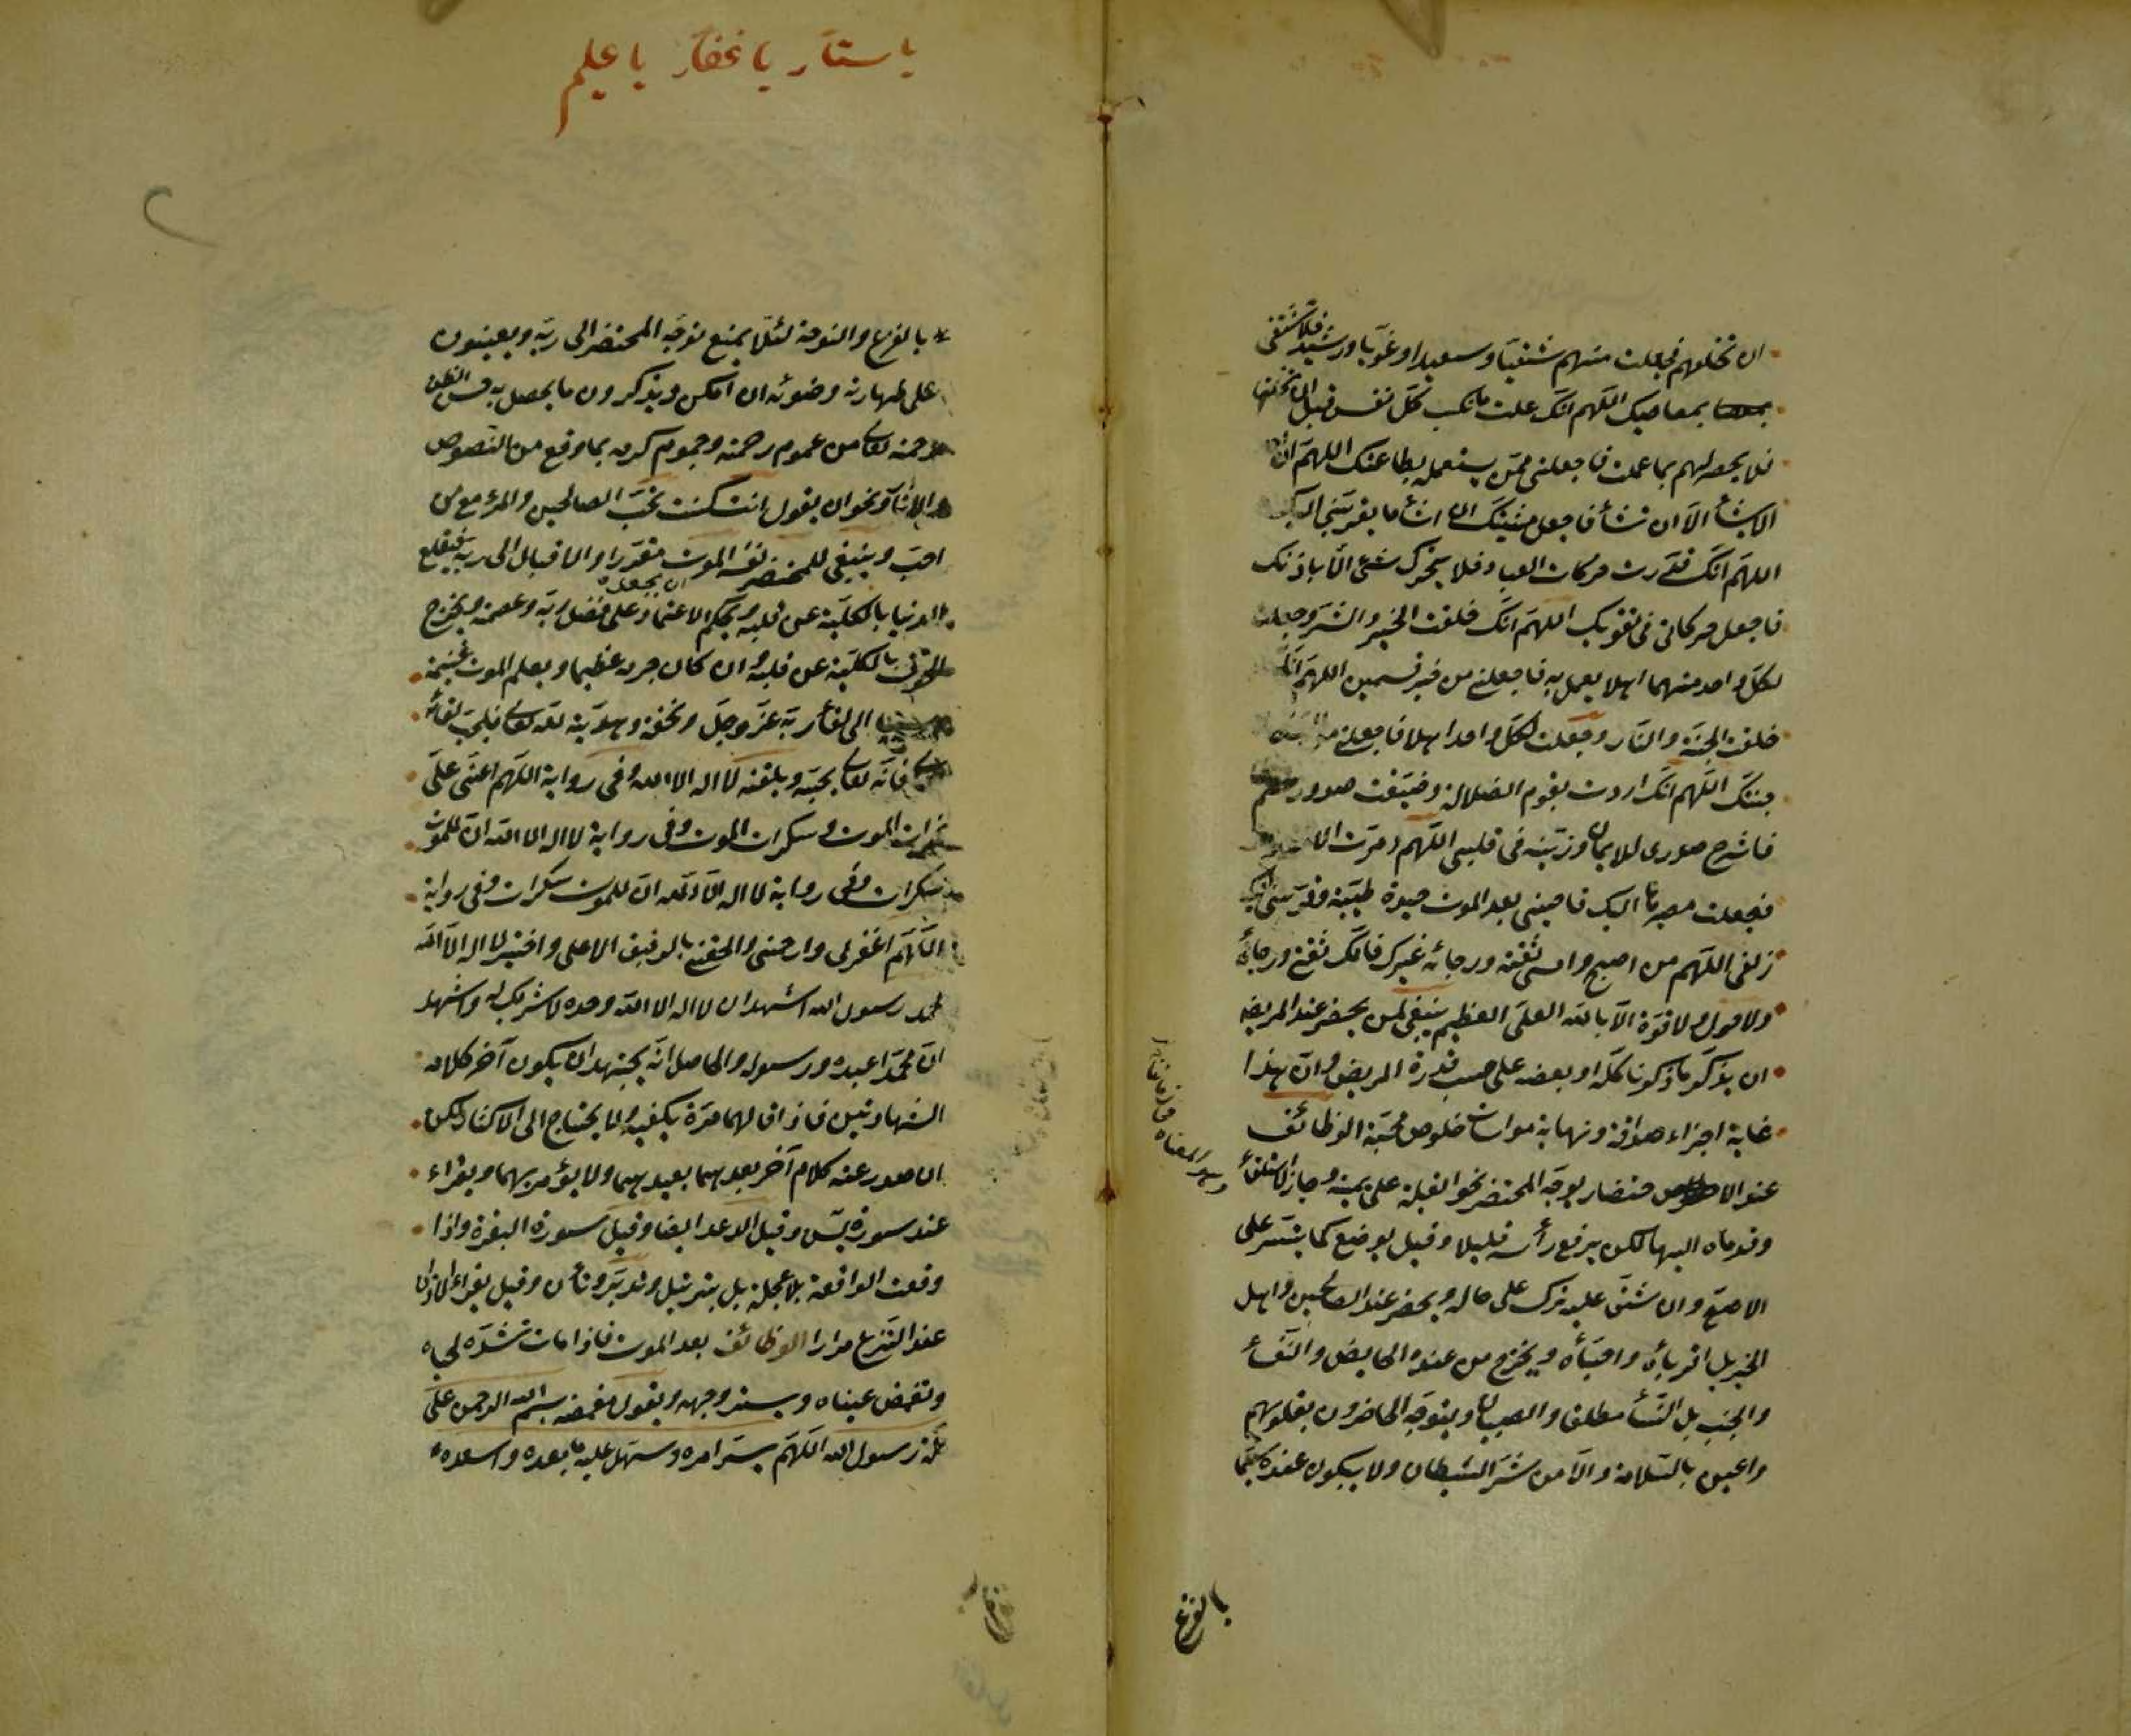 ان تخلقهم فجعلت منهم شقيا وسعيدا وغويا ورشيدا فلا تشقنى
بمعاصيك اللهم انك علمت ما تكسب كل نفس قبل ان تخلقها
فلا محيص لهم مما علمت فاجعلنى ممن يستعمله بطاعتك اللهم ان
لا يشأ الا ان تشأ فاجعل مشيتك ان اشأ ما يقربنى اليك
اللهم انك قدرت حركات العباد فلا يتحرك شئ الا باذنك
فاجعل حركاتى فى تقويك اللهم انك خلقت الخير والشر وجعلت
لكل واحد منهما اهلا يعمل به فاجعلنى من خير قسمين اللهم انك
خلقت الجنة والنار وجعلت لكل واحد اهلا فاجعلنى من
جنتك اللهم انك اردت بقوم الضلالة وضيقت صدورهم
فاشرح صدرى للايمان وزينه فى قلبى اللهم دبرت
فجعلت مصيرها اليك فاحينى بعد الموت حيوة طيبة وقربنى اليك
زلفى اللهم من اصبح وامسى ثقته ورجائه غيرك فانك ثقتى ورجائى
ولا حول ولا قوة الا بالله العلى العظيم ينبغى لمن يحضر عند المريض
ان يذكر ما ذكرنا كله او بعضه على حسب قدرة المريض وان هذا
غاية اجزاء صداقة ونهاية مواسات خلوص محبة الوظائف
عند الاحتضار يوجه المحتضر نحو القبلة على يمينه وجاز الاستلقأ
وقدماه اليها لكن يرفع رأسه قليلا وقيل يوضع كما يتيسر على
الاصح وان شق عليه ترك على حاله ويحضر عند الصالحين واهل
الخير بل اقربأه واحبأه ويخرج من عنده الحايض والنفسأ
والجنب بل النسأ مطلقا والصبيان ويتوجه الحاضرون بقلوبهم
داعين بالسلامة والامن من شر الشيطان ولا يبكون عنده
بالفزع
يا ستار يا غفار يا عليم
بالفزع والنوحة لئلا يمنع توجه المحتضر الى ربه ويعينون
على طهارته وضوئه ان امكن ويذكرون ما يحصل به حسن الظن
رحمته تعالى من عموم رحمته وجموم كرمه بما وقع من النصوص
والاثار ونحو ان يقول انت كنت تحب الصالحين والمرء مع من
احب وينبغى للمحتضر ان يجعله نفسه الموت مقدرا والاقبال الى ربه فيقلع
الدنيا بالكلية عن قلبه ويحكم الاعتماد على فضل ربه وعصمته ويخرج
الخوف بالكلية عن قلبه وان كان جرمه عظيما ويعلم الموت غنيمة
الى لقأ ربه عز وجل وتحفة وهدية لله تعالى فليحب لقأه
فانه تعالى يحبه ويلقنه لا اله الا الله وفى رواية اللهم اعنى على
غمرات الموت وسكرات الموت وفى رواية لا اله الا الله ان للموت
سكرات وفى رواية لا اله الا الله ان للموت سكرات وفى رواية
اللهم اغفر لى وارحمنى والحقنى بالرفيق الاعلى واختير لا اله الا الله
محمد رسول الله اشهد ان لا اله الا الله وحده لا شريك له واشهد
ان محمدا عبده ورسوله والحاصل انه يجتهد ان يكون آخر كلامه
الشهادتين فاذا قالهما مرة يكفيه ولا يحتاج الى الاكثار لكن
ان صدر عنه كلام آخر بعدهما يعيدهما ولا يؤمر بهما ويقراء
عنده سورة يس وقيل الرعد ايضا وقيل سورة البقرة واذا
وقعت الواقعة بلا عجلة بل بترتيل وتدبر وتأن وقيل يقراء الاذان
عند النزع مرارا الوظائف بعد الموت فاذا مات تشد لحياه
وتغمض عيناه ويستر وجهه ويقول مغمضه بسم الله الرحمن على
ملة رسول الله اللهم يسر امره وسهل عليه ما بعده واسعده